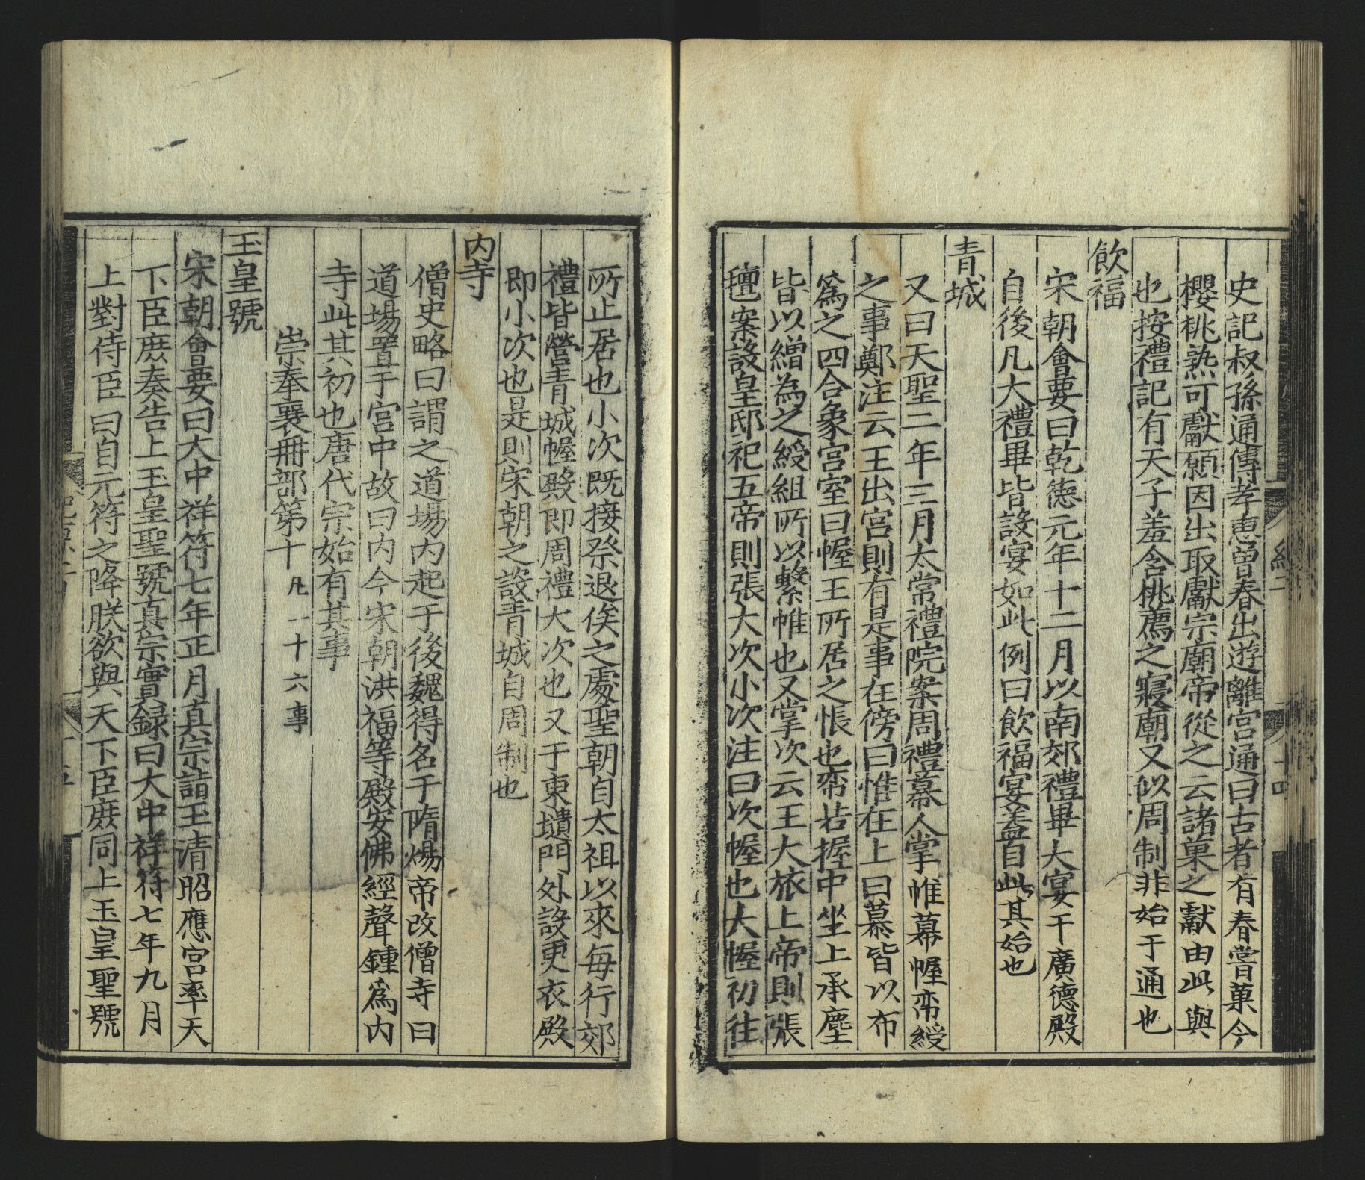 史記叔孫通傳孝惠曾春出遊離宮通曰古者有春嘗菓今
櫻桃熟可獻願因出取獻宗廟帝從之云諸菓之獻由此與
也按禮記有天子羞含桃薦之寢廟又似周制非始于通也
飲福
宋朝會要曰乾德元年十二月以南郊禮畢大宴于廣德殿
自後凡大禮畢皆設宴如此例曰飲福宴蓋自此其始也
青城
又曰天聖二年三月太常禮院案周禮幕人掌帷幕幄帟綬
之事鄭注云王出宮則有是事在傍曰惟在上曰幕皆以布
爲之四合象宮室曰幄王所居之悵也帟若握中坐上承塵
皆以繒為之綬組所以繫帷也又掌次云王大旅上帝則張
氊案設皇邸祀五帝則張大次小次注曰次幄也大幄初往
所止居也小次既接祭退俟之處聖朝自太祖以來每行郊
禮皆營青城幄殿即周禮大次也又于東壝門外設更衣殿
即小次也是則宋朝之設青城自周制也
內寺
僧史略曰謂之道場內起于後魏得名于隋煬帝改僧寺曰
道場置于宮中故曰內今宋朝洪福等殿安佛經聲鍾爲內
寺此其初也唐代宗始有其事
崇奉襃冊部第十 凡二十六事
玉皇號
宋朝會要曰大中祥符七年正月真宗請玉清昭應宮率天
下臣庶奏告上玉皇聖號真宗實録曰大中祥符七年九月
上對侍臣曰自元符之降朕欲與天下臣庶同上玉皇聖號